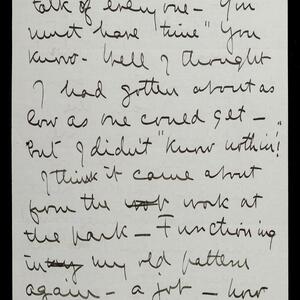 talk of everyone – You
must have "time" You
know – Well I thought
I had gotten about as
low as one could get –
But I didn't "know nothin'!"
I think it came about
from the work at
the park – Functioning
in my old pattern
again – a job – how